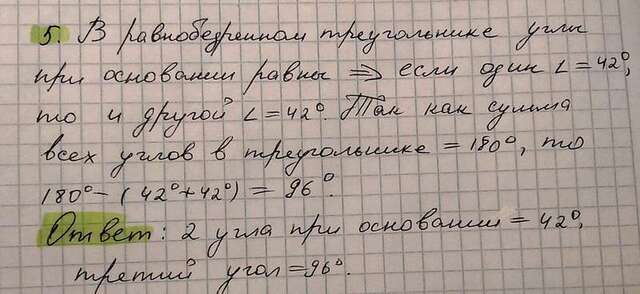 5. В равнобедренном треугольнике углы
при основании равны ⇒ если один ∠ = 42°,
то и другой ∠ = 42°. Так как сумма
всех углов в треугольнике = 180°, то
180° - (42° + 42°) = 96°.
Ответ: 2 угла при основании = 42°,
третий угол = 96°.